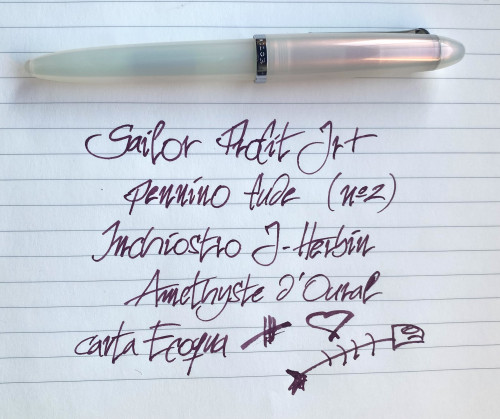 Sailor Profit Jr+
pennino fude (nº2)
Inchiostro J-Herbin
Amethyste d'Oural
carta Ecoqua #